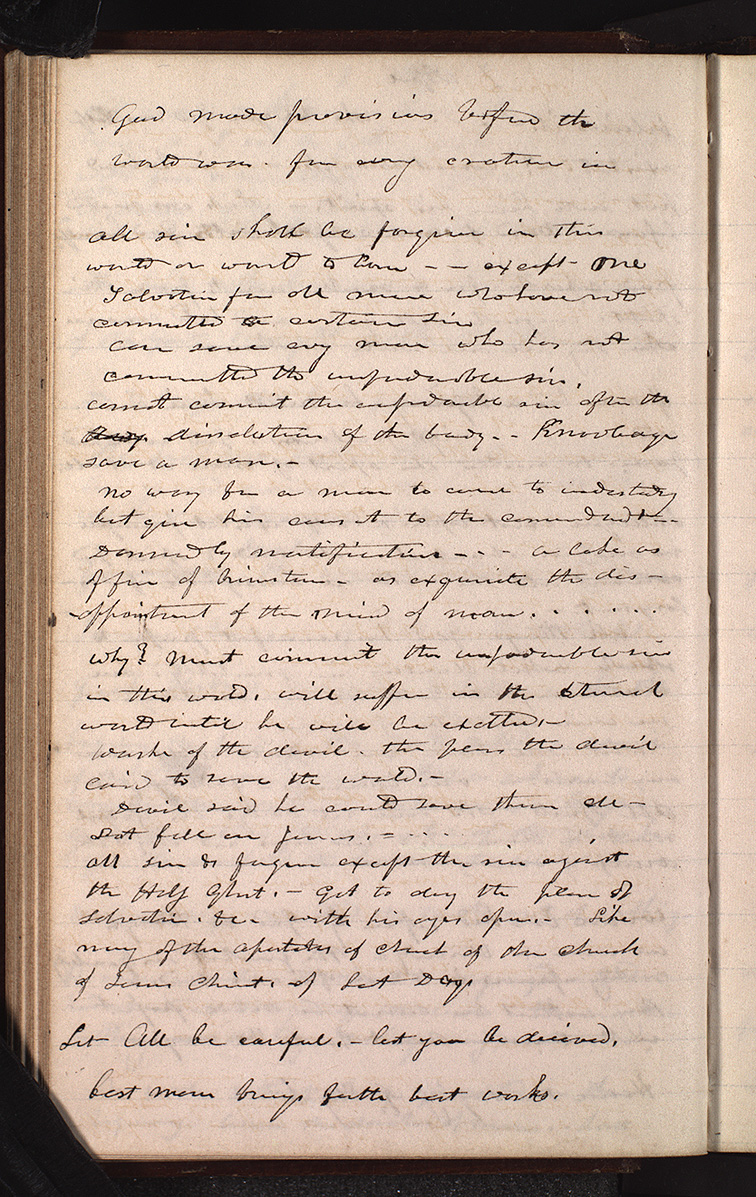 God made provisions before the
world was. for every creature in
all sin shall be forgiven in this
world or world to Come - - except one
Salvation for all men who have not
committed a certain sin
Can save any man who has not
committed the unpardonable sin.
cannot commit the unpardonable sin after the
dissolution of the body. - Knowledge
save a man. -
no way for a man to come to understandg
but give his consent to the commandmt - -
Damned by mortification - - - a lake as
of fire of brimstone - as exquisite the dis-
-appointment of the mind of man. . . . . . .
why? Must commit the unpardonable sin
in this world. will suffer in the eternal
world until he will be exalted. -
Worke of the devil. the plans the devil
laid to save the world. -
Devil said he could save them all -
Lot fell on Jesus. - . . .
All sin &c forgiven except the sin against
the Holy Ghost. - Got to deny the plan of
salvation. &c. with his eyes open. - Like
many of the apostates of christ of the church
of Jesus Christ. of Last Days
Let All be careful. - lest you be deceived.
best man brings forth best works.